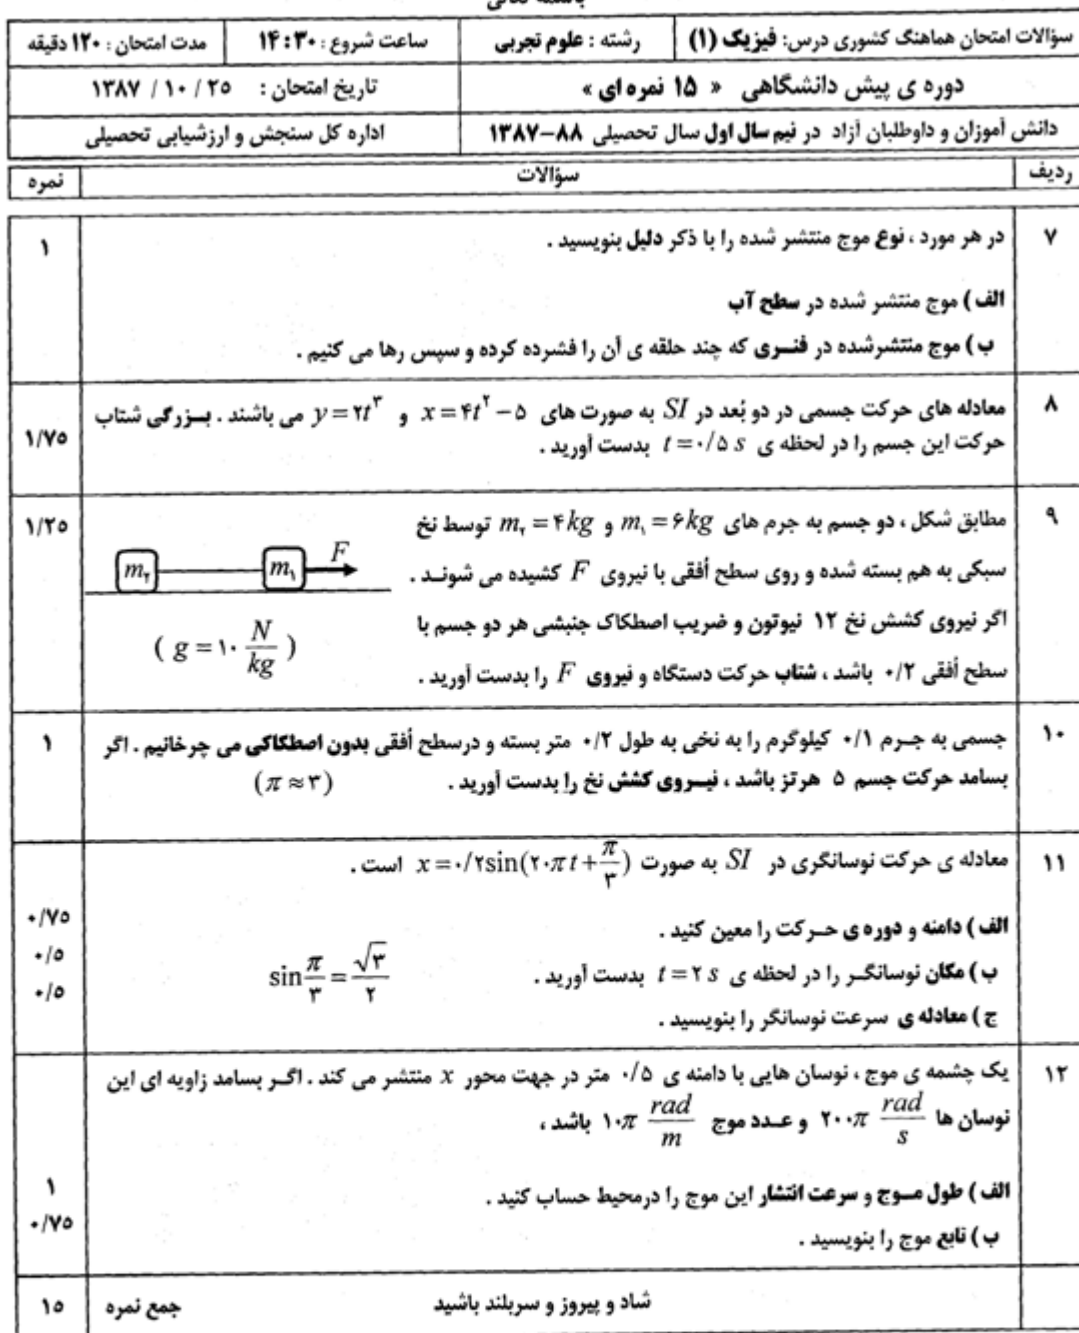 باسمه تعالی
سؤالات امتحان هماهنگ کشوری درس: فیزیک (۱) رشته : علوم تجربی ساعت شروع : ۱۴:۳۰ مدت امتحان : ۱۲۰ دقیقه
دوره ی پیش دانشگاهی « ۱۵ نمره ای » تاریخ امتحان : ۲۵ / ۱۰ / ۱۳۸۷
دانش آموزان و داوطلبان آزاد در نیم سال اول سال تحصیلی ۸۸–۱۳۸۷ اداره کل سنجش و ارزشیابی تحصیلی
ردیف سؤالات نمره
۷ در هر مورد ، نوع موج منتشر شده را با ذکر دلیل بنویسید . ۱
الف ) موج منتشر شده در سطح آب
ب ) موج منتشرشده در فنــری که چند حلقه ی آن را فشرده کرده و سپس رها می کنیم .
۸ معادله های حرکت جسمی در دو بُعد در SI به صورت های x = ۴t^۲ – ۵ و y = ۲t^۳ می باشند . بـزرگی شتاب ۱/۷۵
حرکت این جسم را در لحظه ی t = ۰/۵ s بدست آورید .
۹ مطابق شکل ، دو جسم به جرم های m_۱ = ۶kg و m_۲ = ۴kg توسط نخ ۱/۲۵
سبکی به هم بسته شده و روی سطح اُفقی با نیروی F کشیده می شونـد .
m_۲ m_۱ F
اگر نیروی کشش نخ ۱۲ نیوتون و ضریب اصطکاک جنبشی هر دو جسم با
( g = ۱۰ N/kg )
سطح اُفقی ۰/۲ باشد ، شتاب حرکت دستگاه و نیروی F را بدست آورید .
۱۰ جسمی به جـرم ۰/۱ کیلوگرم را به نخی به طول ۰/۲ متر بسته و درسطح اُفقی بدون اصطکاکی می چرخانیم . اگر ۱
بسامد حرکت جسم ۵ هرتز باشد ، نیــروی کشش نخ را بدست آورید . (π ≈ ۳)
۱۱ معادله ی حرکت نوسانگری در SI به صورت x = ۰/۲sin(۲۰πt + π/۳) است .
الف ) دامنه و دوره ی حـرکت را معین کنید . ۰/۷۵
ب ) مکان نوسانگـر را در لحظه ی t = ۲ s بدست آورید . sin π/۳ = √۳/۲ ۰/۵
ج ) معادله ی سرعت نوسانگر را بنویسید . ۰/۵
۱۲ یک چشمه ی موج ، نوسان هایی با دامنه ی ۰/۵ متر در جهت محور x منتشر می کند . اگـر بسامد زاویه ای این
نوسان ها ۲۰۰π rad/s و عـدد موج ۱۰π rad/m باشد ،
الف ) طول مــوج و سرعت انتشار این موج را درمحیط حساب کنید . ۱
ب ) تابع موج را بنویسید . ۰/۷۵
شاد و پیروز و سربلند باشید جمع نمره ۱۵